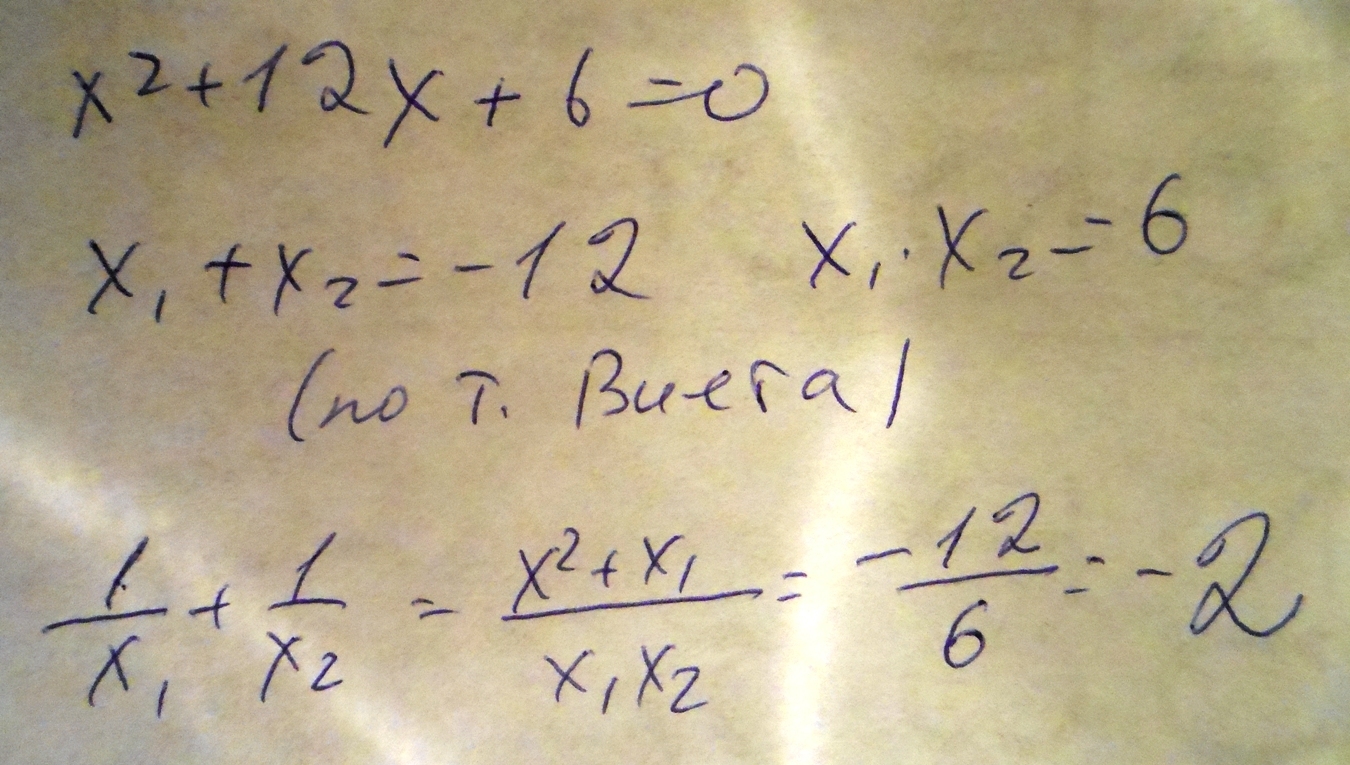 x²+12x+6=0
x₁+x₂=-12 x₁·x₂=6
(по т. Виета)
1/x₁ + 1/x₂ = x²+x₁/x₁x₂ = -12/6 = -2